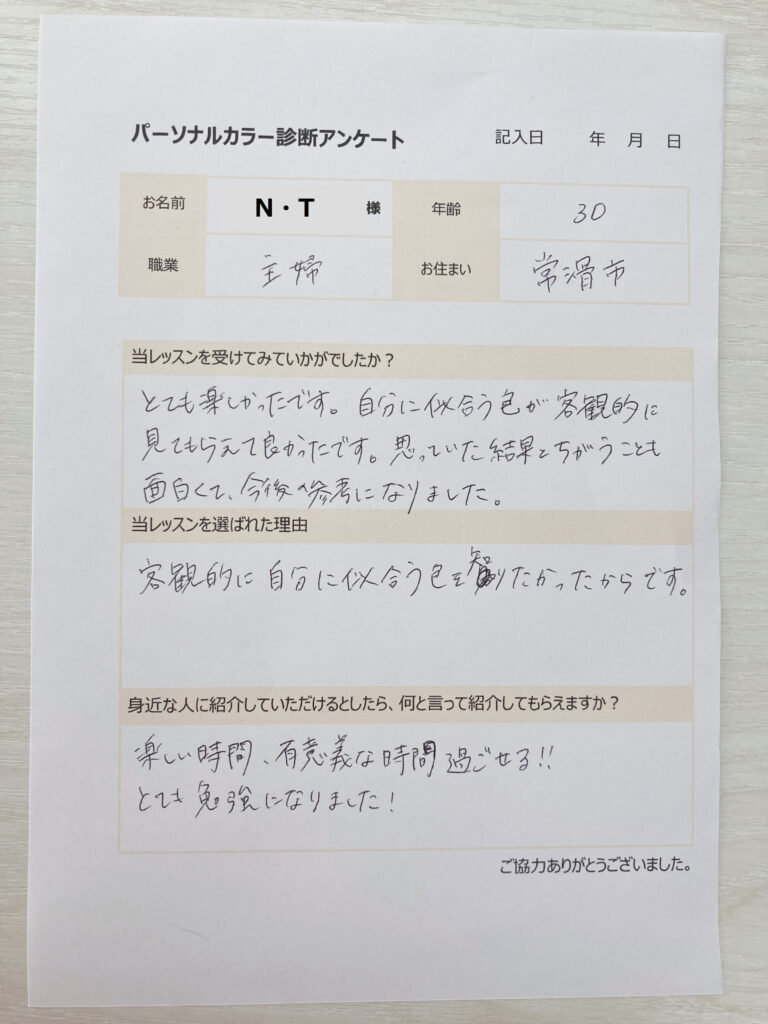 パーソナルカラー診断アンケート 記入日 年 月 日
お名前 N・T 様 年齢 30
職業 主婦 お住まい 常滑市
当レッスンを受けてみていかがでしたか?
とても楽しかったです。自分に似合う色が客観的に
見てもらえて良かったです。思っていた結果とちがうことも
面白くて、今後の参考になりました。
当レッスンを選ばれた理由
客観的に自分に似合う色を知りたかったからです。
身近な人に紹介していただけるとしたら、何と言って紹介してもらえますか?
楽しい時間、有意義な時間過ごせる!!
とても勉強になりました!
ご協力ありがとうございました。